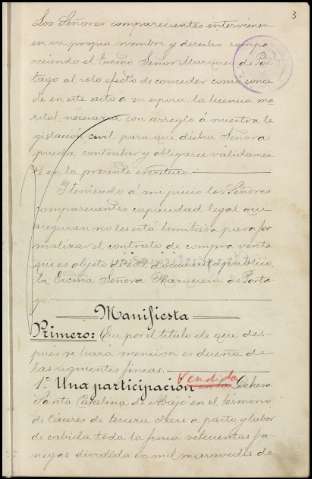 3
Los Señores comparecientes intervienen
en su propio nombre y derecho compa
reciendo el Excmo Señor Marques de Por
tago al solo efecto de conceder como conce
de en este acto a su esposa la licencia ma
rital necesaria con arreglo á nuestra le
gislacion civil para que dicha Señora
pueda contratar y obligarse validamen
te en la presente escritura
Y teniendo á mi juicio los Señores
comparecientes capacidad legal que
aseguran no les está limitada para for
malizar el contrato de compra venta
que es objeto de este documento publico,
la Excma Señora Marquesa de Porta
go
Manifiesta
Primero: Que por el titulo de que des
pués se hará mencion es dueña de
las siguientes fincas.
Vendida
1ª Una participacion Dehesa
Santa Catalina de Abajo en el término
de Cáceres de tercera clase a pasto y labor
de cabida toda la finca setecientas fa
negas dividida en mil maravedis de